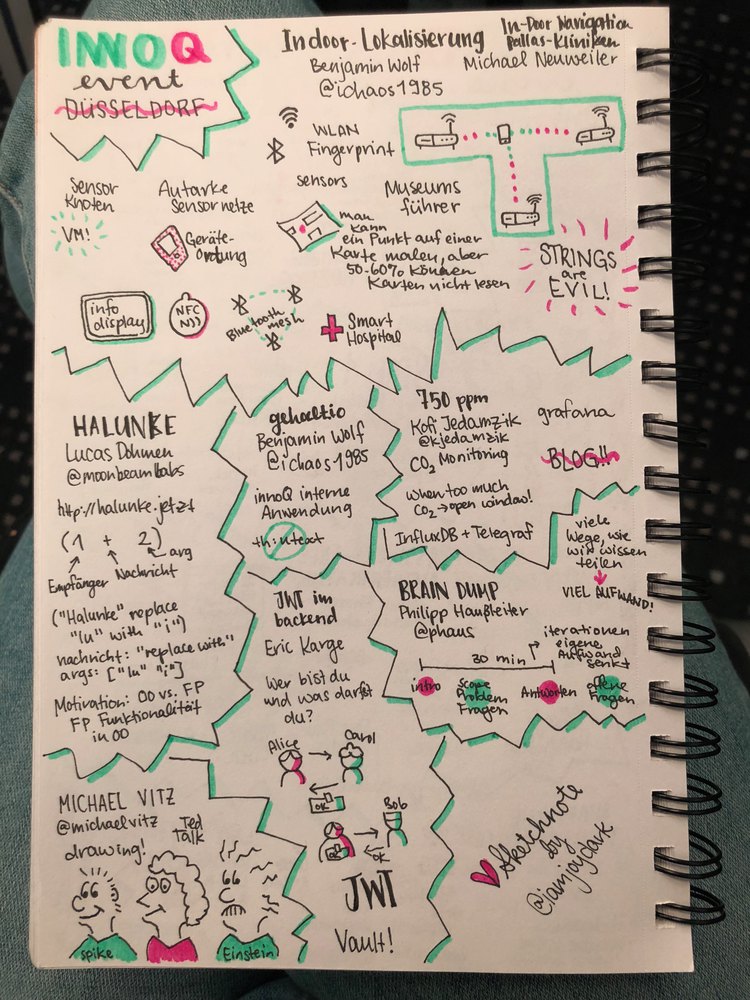 INNOQ
event
DÜSSELDORF
Indoor-Lokalisierung
Benjamin Wolf
@ichaos1985
In-Door Navigation
Pallas-Kliniken
Michael Neuweiler
WLAN
Fingerprint
sensors
Sensor
Knoten
VM!
Autarke
Sensornetze
Geräte-
ortung
Museums
führer
man
kann
ein Punkt auf einer
Karte malen, aber
50-60% können
Karten nicht lesen
STRINGS
are
EVIL!
info
display
NFC
Bluetooth
mesh
Smart
Hospital
HALUNKE
Lucas Dohmen
@moonbeamlabs
http://halunke.jetzt
(1 + 2)
arg
Empfänger
Nachricht
("Halunke" replace
"lu" with "i")
nachricht: "replace with"
args: ["lu" "i"]
Motivation: OO vs. FP
FP Funktionalität
in OO
gehaltio
Benjamin Wolf
@ichaos1985
innoQ interne
Anwendung
th:utext
750 ppm
Kofi Jedamzik
@kjedamzik
CO2 Monitoring
when too much
CO2 → open window!
InfluxDB + Telegraf
grafana
BLOG!!
viele
Wege, wie
wir wissen
teilen
VIEL AUFWAND!
JWT im
backend
Eric Karge
Wer bist du
und was darfst
du?
Alice
Carol
OK
Bob
OK
OK
JWT
Vault!
BRAIN DUMP
Philipp Haußleiter
@phaus
iterationen
eigene
Aufwand
senkt
30 min
intro
scope
Problem
Fragen
Antworten
offene
Fragen
MICHAEL VITZ
@michaelvitz
Ted
Talk
drawing!
spike
Einstein
Sketchnote
by
@iamjoyclark